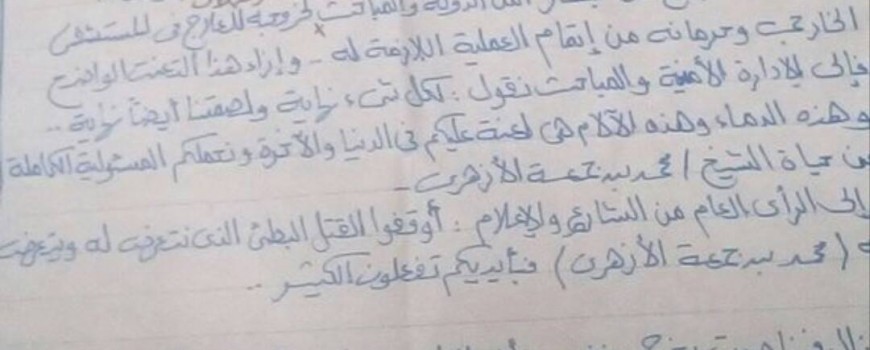 الدولة والمباحث لخروجه للعلاج في المستشفى
الخارجى وحرمانه من إتمام العملية اللازمة له - وإزاء هذا التعنت الواضح
فإلى الإدارة الأمنية والمباحث نقول : لكل شىء نهاية ولصمتنا أيضاً نهاية ..
وهذه الدماء وهذه الآلام هى لعنة عليكم فى الدنيا والآخرة ونحملكم المسئولية الكاملة
عن حياة الشيخ / محمد جمعة الأزهرى -
إلى الرأى العام من الشارع والإعلام : أوقفوا القتل البطئ الذى نتعرض له ويتعرض
له ( محمد جمعة الأزهرى ) فبأيديكم تفعلون الكثير ..